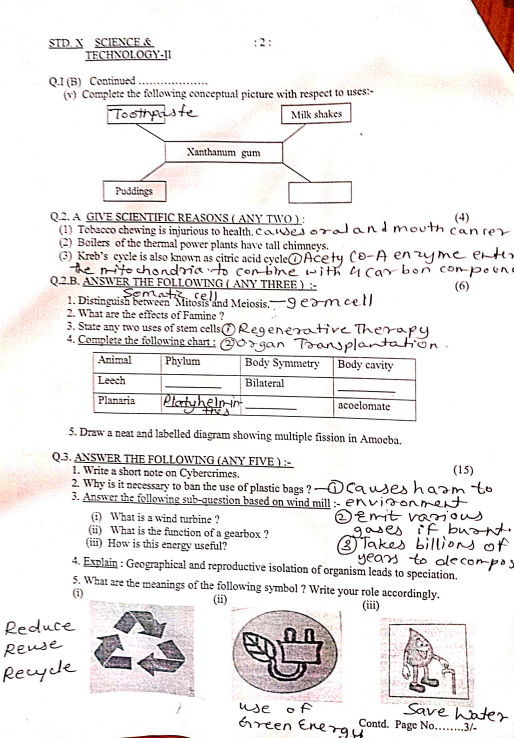 STD. X SCIENCE & : 2 :
TECHNOLOGY-II
Q.I (B) Continued ...................
(v) Complete the following conceptual picture with respect to uses:-
Toothpaste Milk shakes
Xanthanum gum
Puddings
Q.2. A GIVE SCIENTIFIC REASONS ( ANY TWO ) : (4)
(1) Tobacco chewing is injurious to health. causes oral and mouth cancer
(2) Boilers of the thermal power plants have tall chimneys.
(3) Kreb's cycle is also known as citric acid cycle ① Acety Co-A enzyme enter
the mitochondria to combine with 4 carbon compound
Q.2.B. ANSWER THE FOLLOWING ( ANY THREE ) :- (6)
Somatic cell
1. Distinguish between Mitosis and Meiosis. — germcell
2. What are the effects of Famine ?
3. State any two uses of stem cells ① Regenerative Therapy
4. Complete the following chart : ② Organ Transplantation.
Animal Phylum Body Symmetry Body cavity
Leech ________ Bilateral ________
Planaria Platyhelmin- ________ acoelomate
thes
5. Draw a neat and labelled diagram showing multiple fission in Amoeba.
Q.3. ANSWER THE FOLLOWING (ANY FIVE ) :- (15)
1. Write a short note on Cybercrimes.
2. Why is it necessary to ban the use of plastic bags ? — ① Causes harm to
3. Answer the following sub-question based on wind mill :- environment
(i) What is a wind turbine ? ② Emit various
(ii) What is the function of a gearbox ? gases if burnt.
(iii) How is this energy useful? ③ Takes billions of
years to decompos
4. Explain : Geographical and reproductive isolation of organism leads to speciation.
5. What are the meanings of the following symbol ? Write your role accordingly.
(i) (ii) (iii)
Reduce
Reuse
Recycle
use of
Green Energy
Save Water
Contd. Page No........3/-